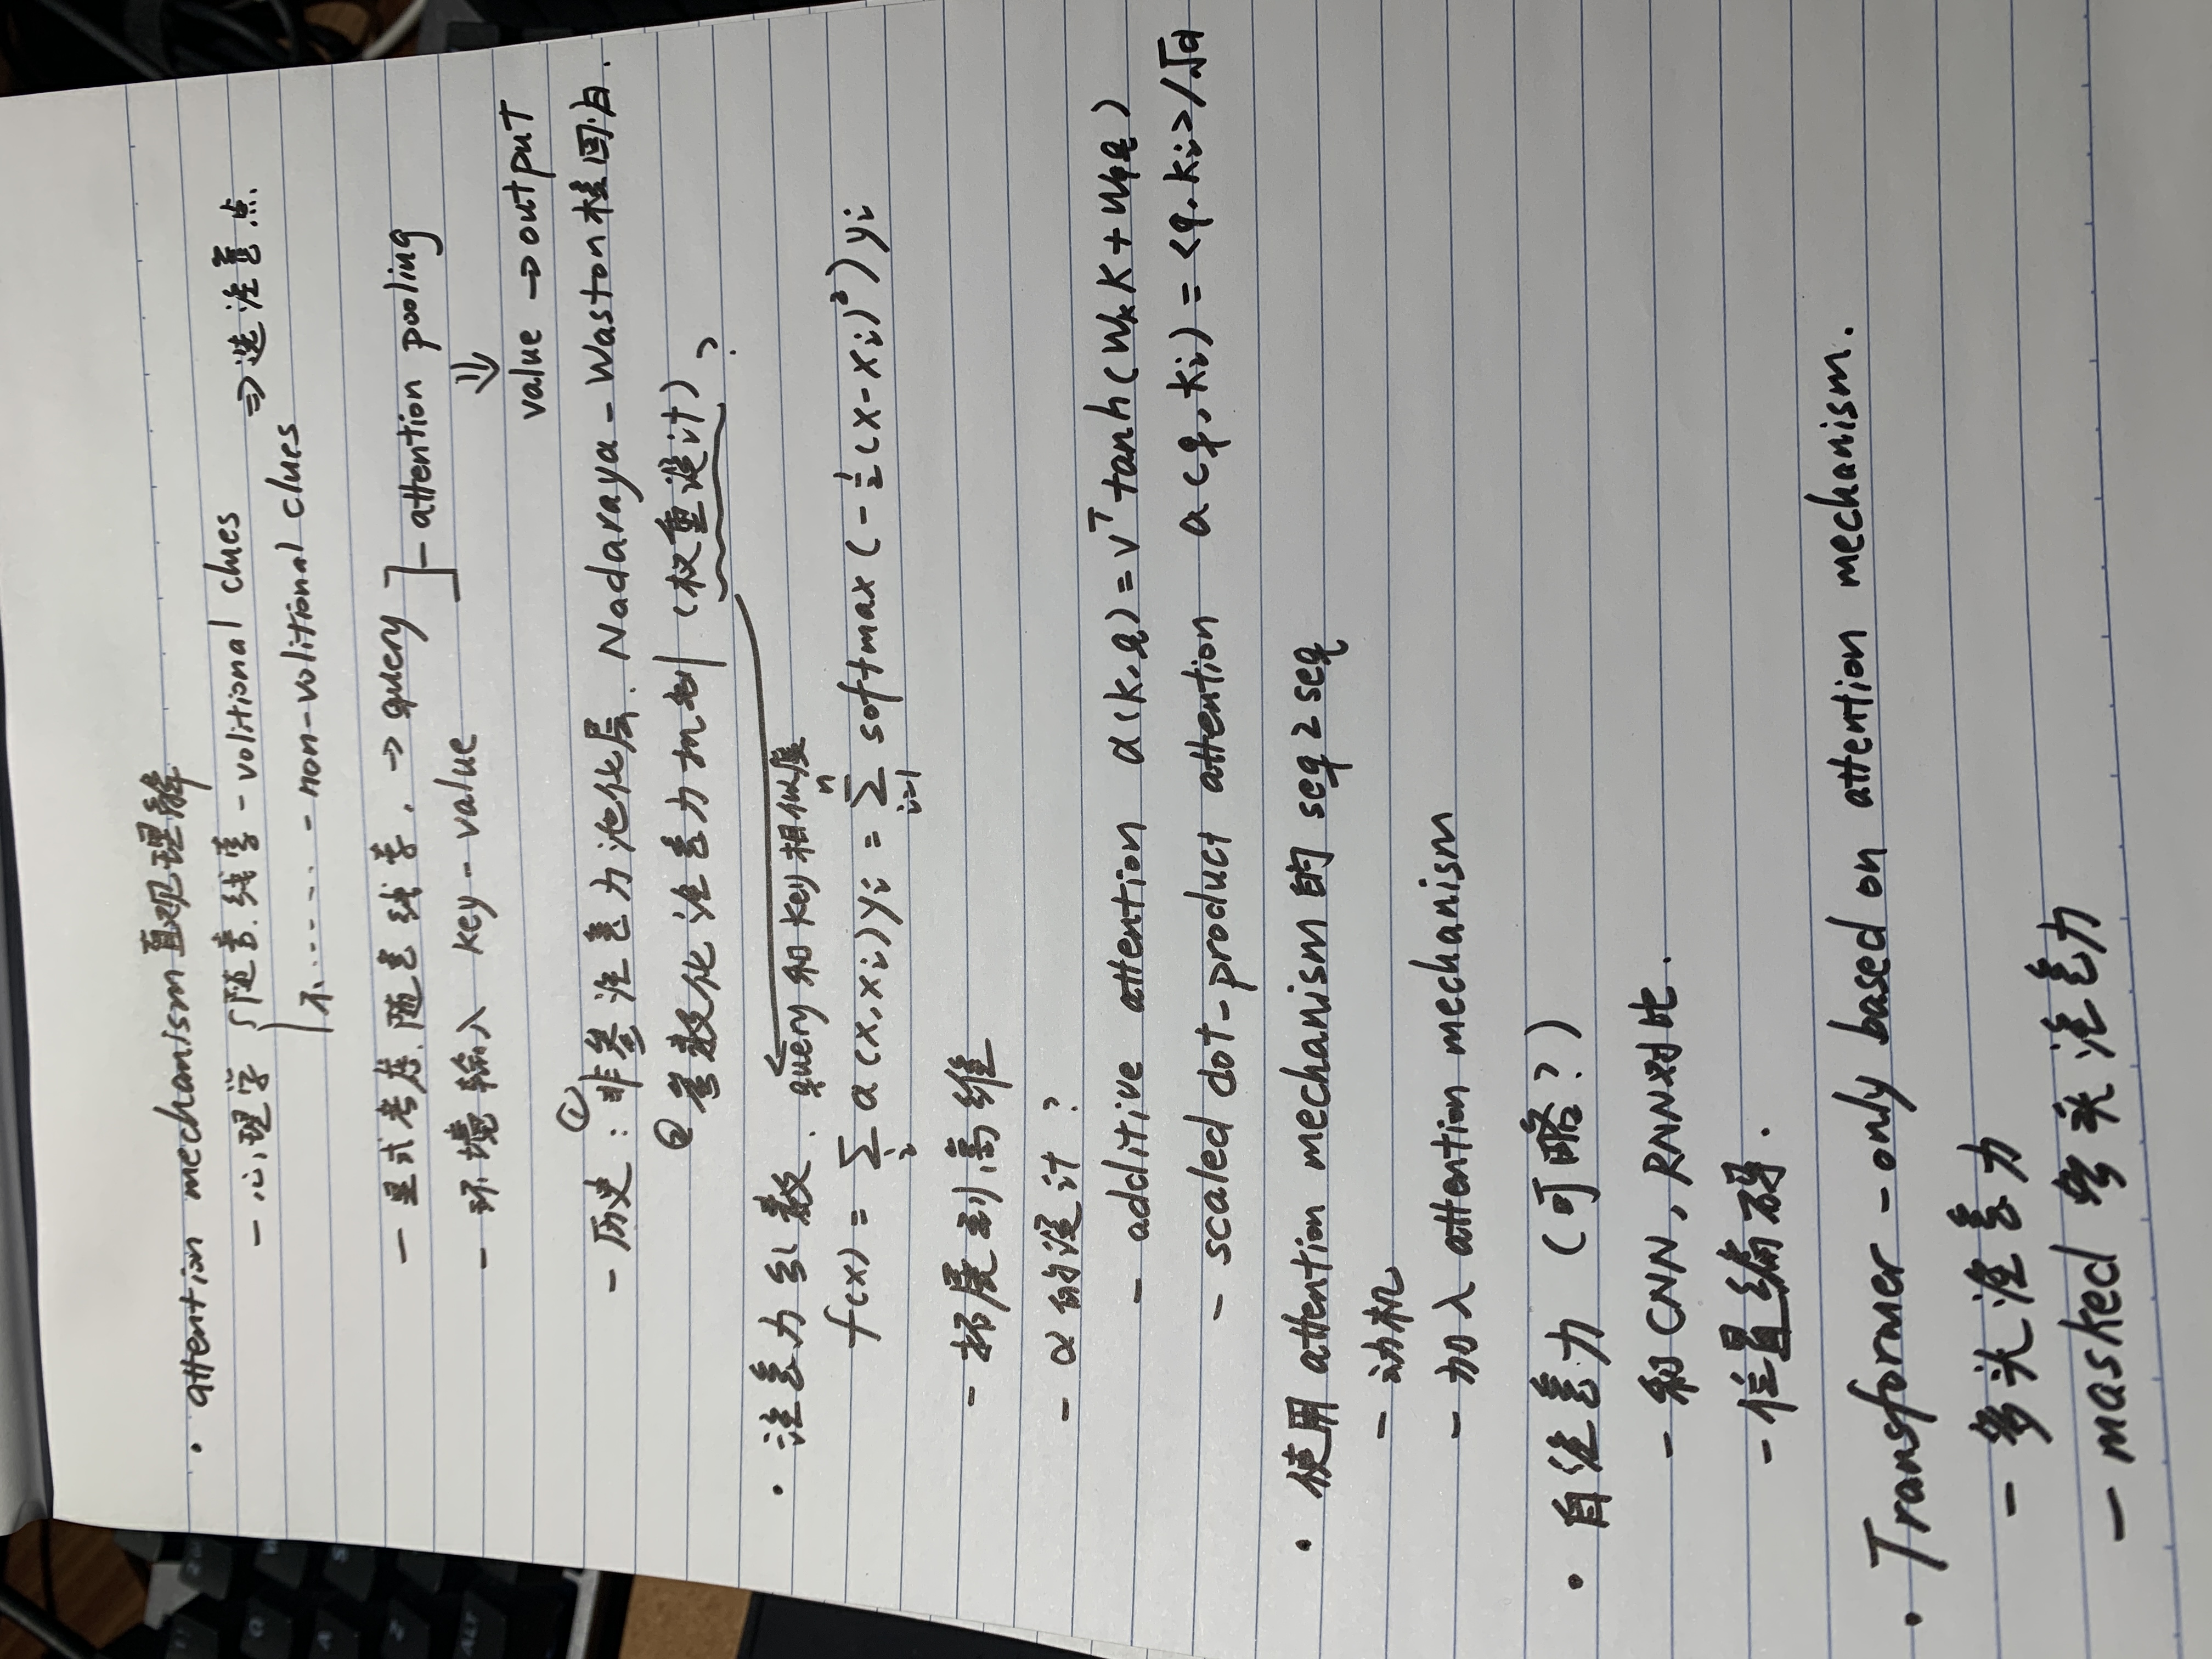 · attention mechanism 直观理解
- 心理学 { 随意线索 - volitional clues ⇒ 选注意点
不······ - non-volitional clues
- 显式考虑随意线索. → query
- 环境输入 key - value
] - attention pooling
⇓
value → output
- 历史: ① 非参注意力池化层. Nadaraya - Waston 核回归.
② 参数化注意力机制 (权重设计) ?
· 注意力分数. query 和 key 相似度
f(x) = ∑_i α(x, x_i) y_i = ∑_{i=1}^{n} softmax (-½(x - x_i)²) y_i
- 拓展到高维
- α 的设计?
- additive attention α(k, q) = v^T tanh(W_k K + W_q q)
- scaled dot-product attention a(q, k_i) = <q, k_i>/√d
· 使用 attention mechanism 的 seq2seq
- 动机
- 加入 attention mechanism
· 自注意力 (可略?)
- 和 CNN, RNN 对比.
- 位置编码.
· Transformer - only based on attention mechanism.
- 多头注意力
- masked 多头注意力